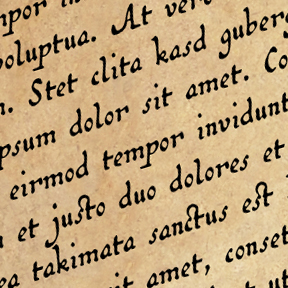 mpor in
voluptua. At vero
n. Stet clita kasd guberg
ipsum dolor sit amet. Co
eirmod tempor invidunt
et justo duo dolores et
ea takimata sanctus est
sit amet, conset
ut